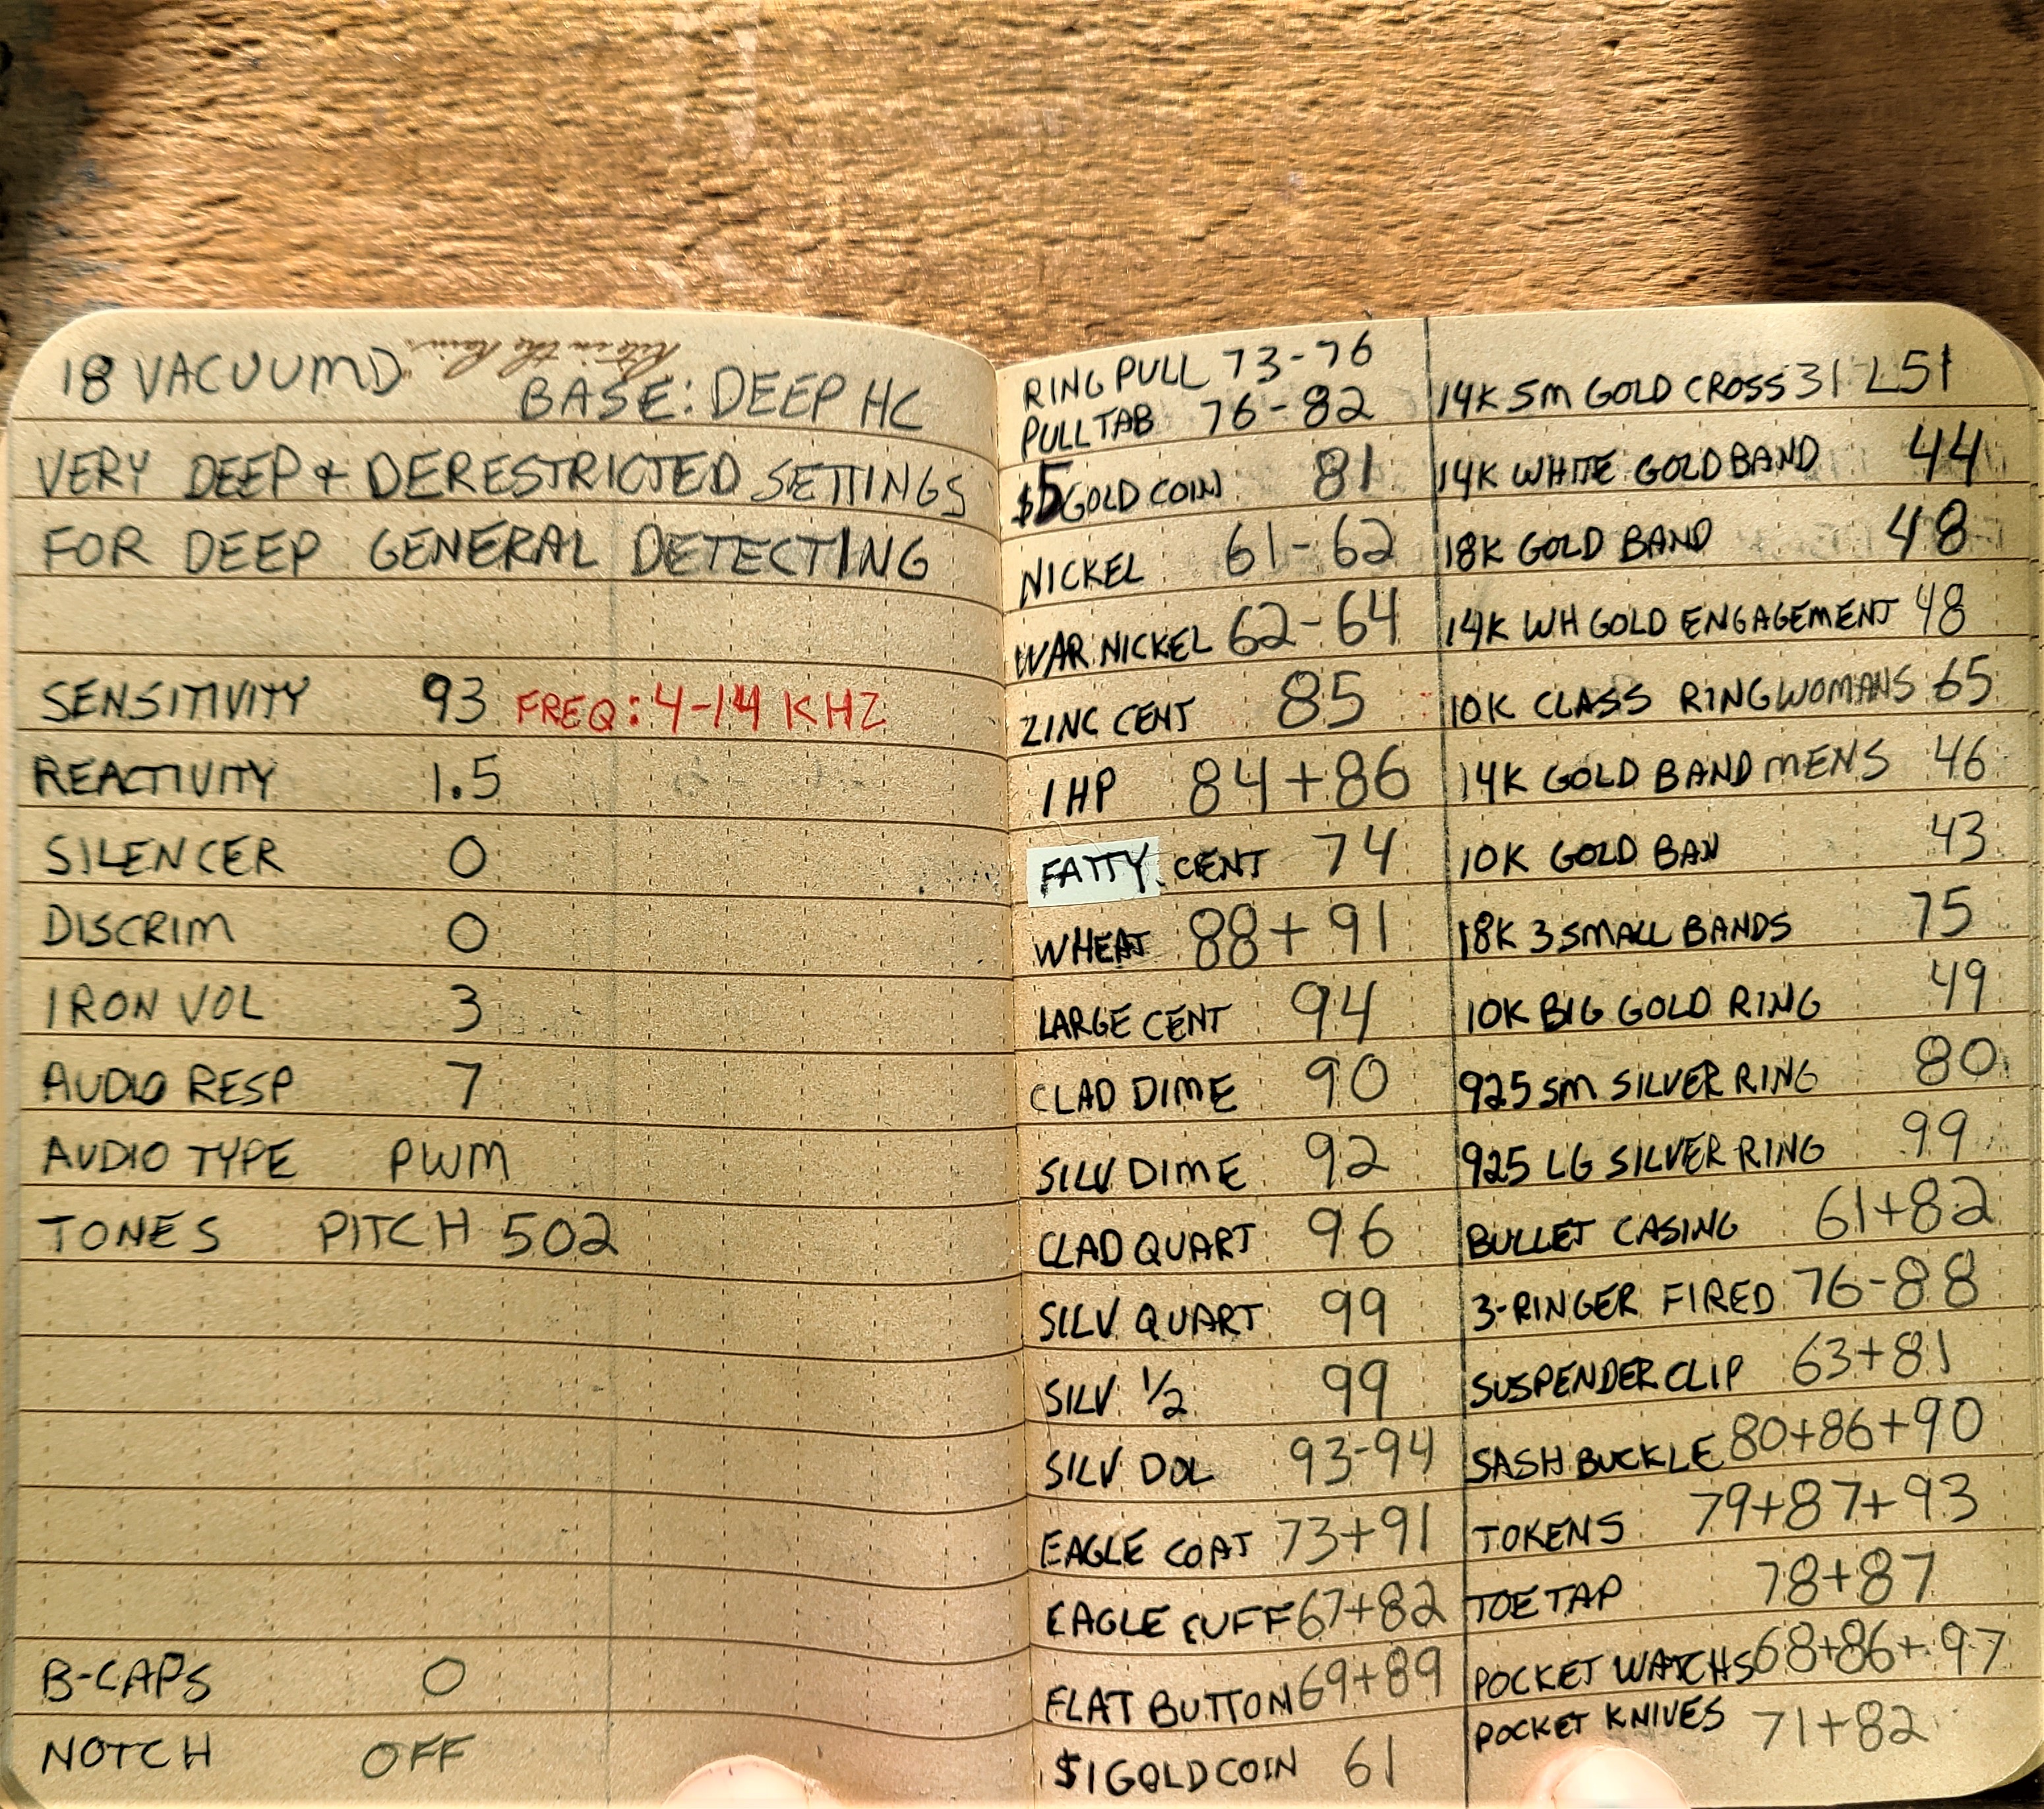 18 VACUUMD
"Rite in the Rain"
BASE: DEEP HC
VERY DEEP + DERESTRICTED SETTINGS
FOR DEEP GENERAL DETECTING
SENSITIVITY 93 FREQ: 4-14 KHZ
REACTIVITY 1.5
SILENCER 0
DISCRIM 0
IRON VOL 3
AUDIO RESP 7
AUDIO TYPE PWM
TONES PITCH 502
B-CAPS 0
NOTCH OFF
RING PULL 73-76
PULL TAB 76-82
$5 GOLD COIN 81
NICKEL 61-62
WAR NICKEL 62-64
ZINC CENT 85
IHP 84+86
FATTY CENT 74
WHEAT 88+91
LARGE CENT 94
CLAD DIME 90
SILV DIME 92
CLAD QUART 96
SILV QUART 99
SILV 1/2 99
SILV DOL 93-94
EAGLE COAT 73+91
EAGLE CUFF 67+82
FLAT BUTTON 69+89
$1 GOLD COIN 61
14K SM GOLD CROSS 31 L51
14K WHITE GOLD BAND 44
18K GOLD BAND 48
14K WH GOLD ENGAGEMENT 48
10K CLASS RING WOMANS 65
14K GOLD BAND MENS 46
10K GOLD BAN 43
18K 3 SMALL BANDS 75
10K BIG GOLD RING 49
925 SM SILVER RING 80
925 LG SILVER RING 99
BULLET CASING 61+82
3-RINGER FIRED 76-88
SUSPENDER CLIP 63+81
SASH BUCKLE 80+86+90
TOKENS 79+87+93
TOE TAP 78+87
POCKET WATCHS 68+86+97
POCKET KNIVES 71+82